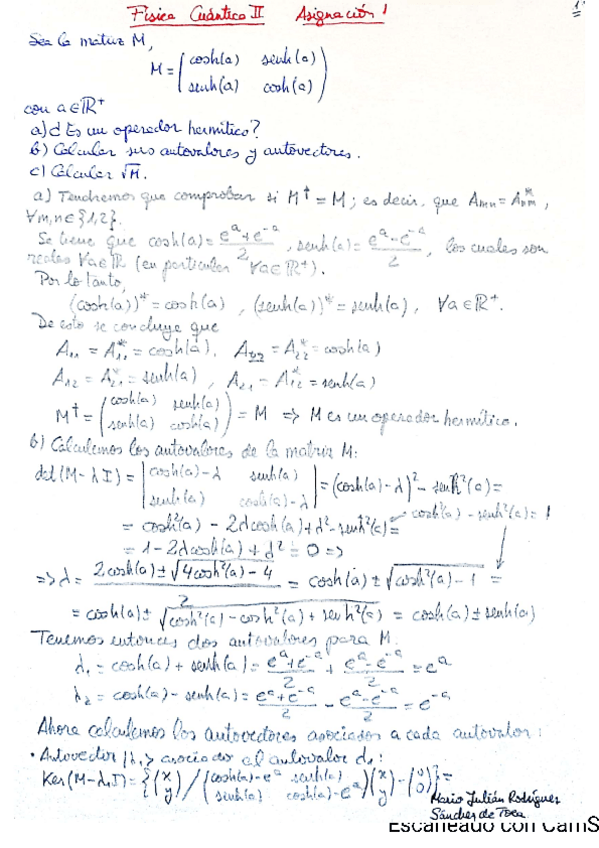 Física Cuántica II Asignación 1 1
Sea la matriz M,
M = ( cosh(a) senh(a)
senh(a) cosh(a) )
con a ∈ ℝ⁺
a) ¿Es un operador hermítico?
b) Calcular sus autovalores y autovectores.
c) Calcular √M.
a) Tendremos que comprobar si M† = M; es decir, que Amn = A*nm,
∀m,n ∈ {1,2}.
Se tiene que cosh(a) = (e^a + e^-a)/2, senh(a) = (e^a - e^-a)/2, los cuales son
reales ∀a ∈ ℝ (en particular ∀a ∈ ℝ⁺).
Por lo tanto,
(cosh(a))* = cosh(a), (senh(a))* = senh(a), ∀a ∈ ℝ⁺.
De esto se concluye que
A₁₁ = A*₁₁ = cosh(a), A₂₂ = A*₂₂ = cosh(a)
A₁₂ = A*₂₁ = senh(a), A₂₁ = A*₁₂ = senh(a)
M† = ( cosh(a) senh(a)
senh(a) cosh(a) ) = M ⇒ M es un operador hermítico.
b) Calculemos los autovalores de la matriz M:
det(M - λI) = | cosh(a) - λ senh(a)
senh(a) cosh(a) - λ | = (cosh(a) - λ)² - senh²(a) =
= cosh²(a) - 2λcosh(a) + λ² - senh²(a) = cosh²(a) - senh²(a) = 1
= 1 - 2λcosh(a) + λ² = 0 =>
=> λ = (2cosh(a) ± √(4cosh²(a) - 4))/2 = cosh(a) ± √(cosh²(a) - 1) =
= cosh(a) ± √(cosh²(a) - cosh²(a) + senh²(a)) = cosh(a) ± senh(a)
Tenemos entonces dos autovalores para M.
λ₁ = cosh(a) + senh(a) = (e^a + e^-a)/2 + (e^a - e^-a)/2 = e^a
λ₂ = cosh(a) - senh(a) = (e^a + e^-a)/2 - (e^a - e^-a)/2 = e^-a
Ahora calculemos los autovectores asociados a cada autovalor:
• Autovector |λ₁> asociado al autovalor λ₁:
Ker(M - λ₁I) = { (x y) / ( cosh(a) - e^a senh(a)
senh(a) cosh(a) - e^a ) (x y) = (0 0) } =
Mario Julián Rodríguez
Sánchez de Toca
Escaneado con CamS